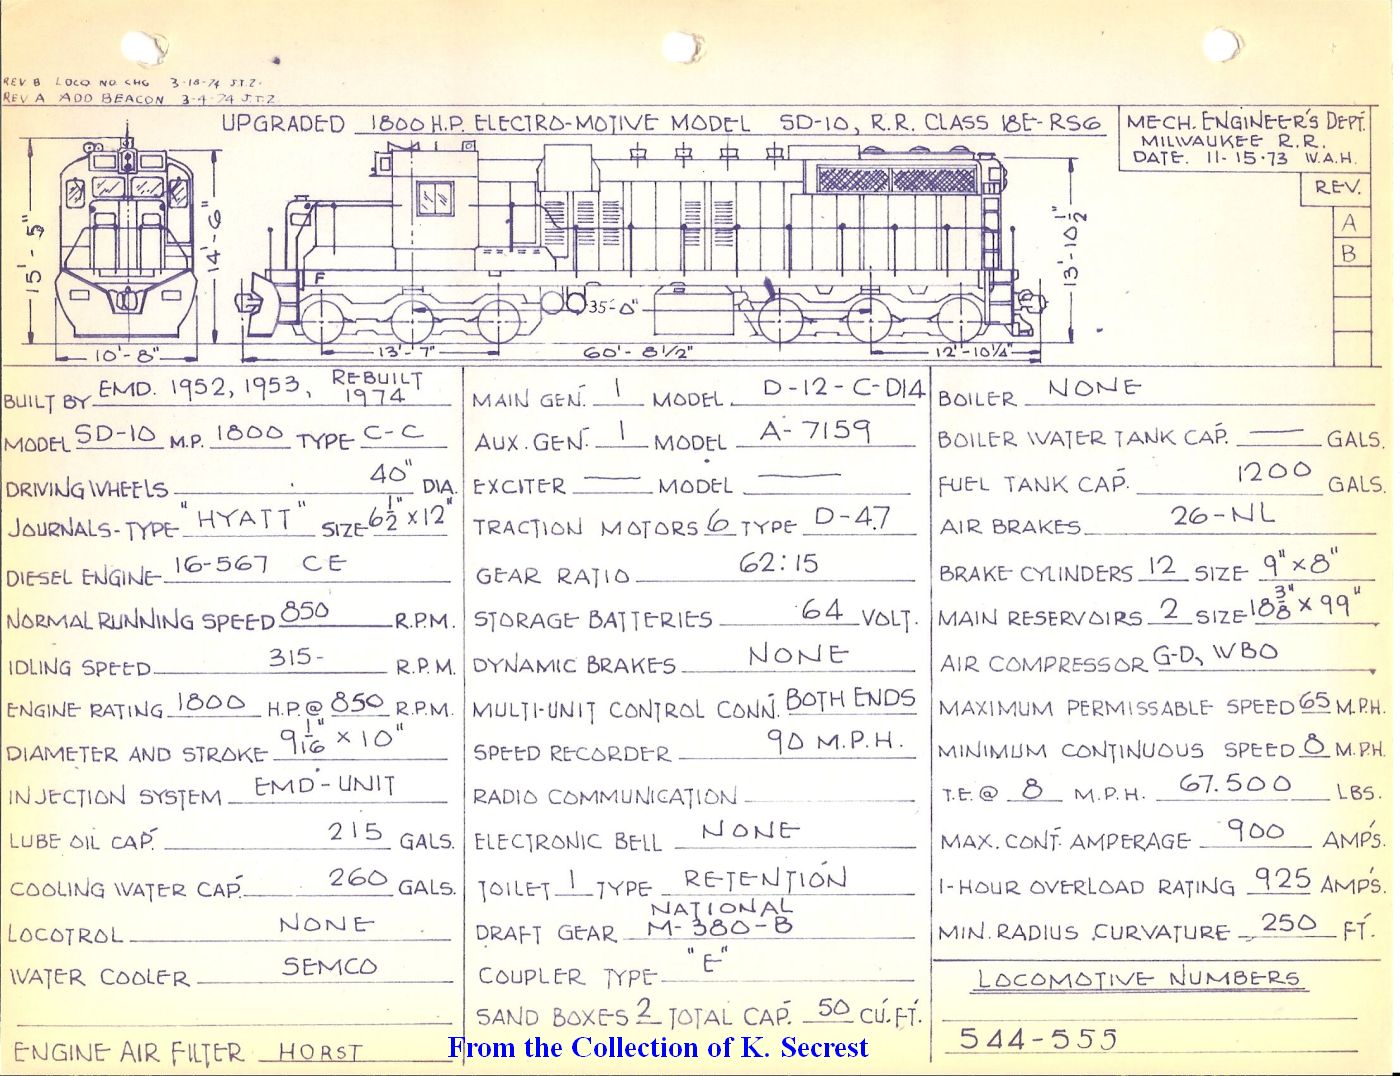 REV B LOCO NO. CHG 3-18-74 J.T.Z.
REV A ADD BEACON 3-4-74 J.T.Z.
UPGRADED 1800 H.P. ELECTRO-MOTIVE MODEL SD-10, R.R. CLASS 18E-RS6
MECH. ENGINEER'S DEPT.
MILWAUKEE R.R.
DATE. 11-15-73 W.A.H.
REV.
A
B
15'-5"
14'-6"
10'-8"
F
35'-0"
13'-7"
60'-8 1/2"
12'-10 1/4"
13'-10 1/2"
BUILT BY EMD. 1952, 1953, REBUILT 1974
MODEL SD-10 M.P. 1800 TYPE C-C
DRIVING WHEELS 40" DIA.
JOURNALS-TYPE "HYATT" SIZE 6 1/2" x 12"
DIESEL ENGINE 16-567 CE
NORMAL RUNNING SPEED 850 R.P.M.
IDLING SPEED 315- R.P.M.
ENGINE RATING 1800 H.P. @ 850 R.P.M.
DIAMETER AND STROKE 9 1/16" x 10"
INJECTION SYSTEM EMD-UNIT
LUBE OIL CAP. 215 GALS.
COOLING WATER CAP. 260 GALS.
LOCOTROL NONE
WATER COOLER SEMCO
ENGINE AIR FILTER HORST
MAIN GEN. 1 MODEL D-12-C-D14
AUX. GEN. 1 MODEL A-7159
EXCITER — MODEL —
TRACTION MOTORS 6 TYPE D-47
GEAR RATIO 62:15
STORAGE BATTERIES 64 VOLT.
DYNAMIC BRAKES NONE
MULTI-UNIT CONTROL CONN. BOTH ENDS
SPEED RECORDER 90 M.P.H.
RADIO COMMUNICATION
ELECTRONIC BELL NONE
TOILET 1 TYPE RETENTION
DRAFT GEAR NATIONAL M-380-B
COUPLER TYPE "E"
SAND BOXES 2 TOTAL CAP. 50 CU.FT.
BOILER NONE
BOILER WATER TANK CAP. — GALS.
FUEL TANK CAP. 1200 GALS.
AIR BRAKES 26-NL
BRAKE CYLINDERS 12 SIZE 9" x 8"
MAIN RESERVOIRS 2 SIZE 18 3/8" x 99"
AIR COMPRESSOR G-D, WBO
MAXIMUM PERMISSABLE SPEED 65 M.P.H.
MINIMUM CONTINUOUS SPEED 8 M.P.H.
T.E. @ 8 M.P.H. 67.500 LBS.
MAX. CONT. AMPERAGE 900 AMP'S.
1-HOUR OVERLOAD RATING 925 AMP'S.
MIN. RADIUS CURVATURE 250 FT.
LOCOMOTIVE NUMBERS
544-555
From the Collection of K. Secrest